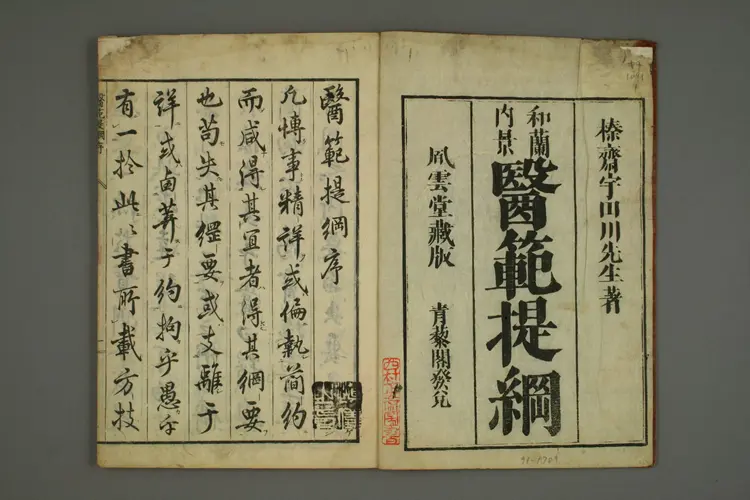 榛齋宇田川先生著
和蘭
内景
醫範提綱
風雲堂藏版
青藜閣發兌
醫範提綱序
凡慱事精詳或偏執簡約
而咸得其宜者得其綱要
也苟失其綱要或支離于
詳或鹵莽于約拘乎愚乎
有一於此此書所載方技
醫範提綱序